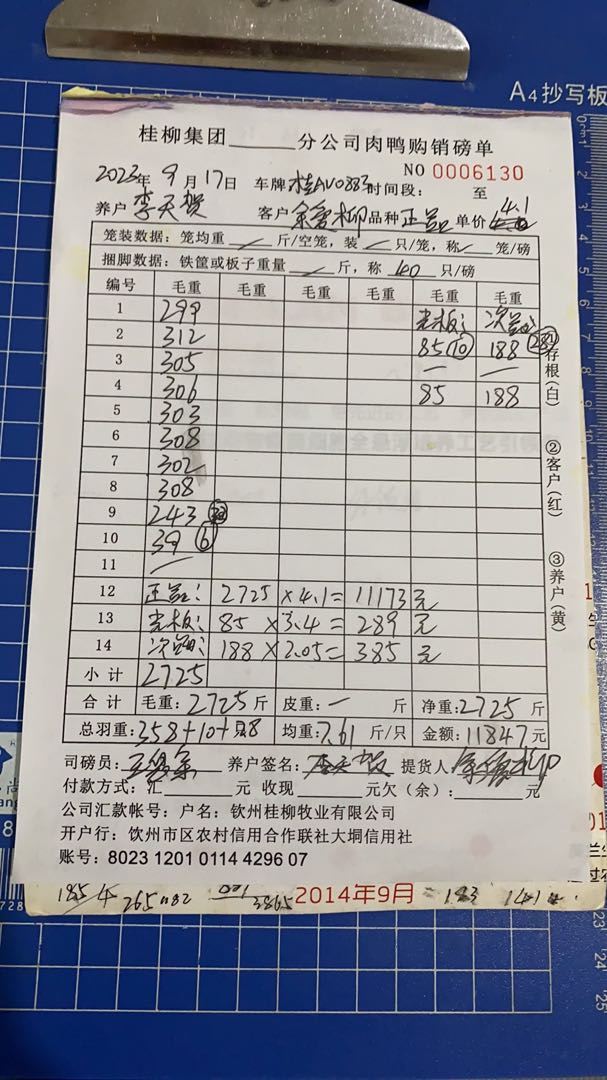 A4抄写板
桂柳集团______分公司肉鸭购销磅单
NO 0006130
2023年 9 月 17日 车牌 桂AV0883 时间段: 至
养户 李天贺 客户 余爱柳 品种 正品 单价 4.1
笼装数据: 笼均重 / 斤/空笼, 装 / 只/笼, 称 / 笼/磅
捆脚数据: 铁筐或板子重量 / 斤, 称 40 只/磅
编号 毛重 毛重 毛重 毛重 毛重 毛重
1 299 光板: 次品:
2 312 85 (10) 188
3 305 — —
4 306 85 188
5 303
6 308
7 302
8 308
9 243
10 39 (6)
11 —
12 正品: 2725 × 4.1 = 11173 元
13 光板: 85 × 3.4 = 289 元
14 次品: 188 × 2.05 = 385 元
小计 2725
合计 毛重: 2725 斤 皮重: — 斤 净重: 2725 斤
总羽重: 358+10+28 均重: 7.61 斤/只 金额: 11847 元
司磅员: 养户签名: 李天贺 提货人 余爱柳
付款方式: 汇______元 收现______元欠(余):______元
公司汇款帐号: 户名: 钦州桂柳牧业有限公司
开户行: 钦州市区农村信用合作联社大垌信用社
账号: 8023 1201 0114 4296 07
①存根(白)
②客户(红)
③养户(黄)
2014年9月